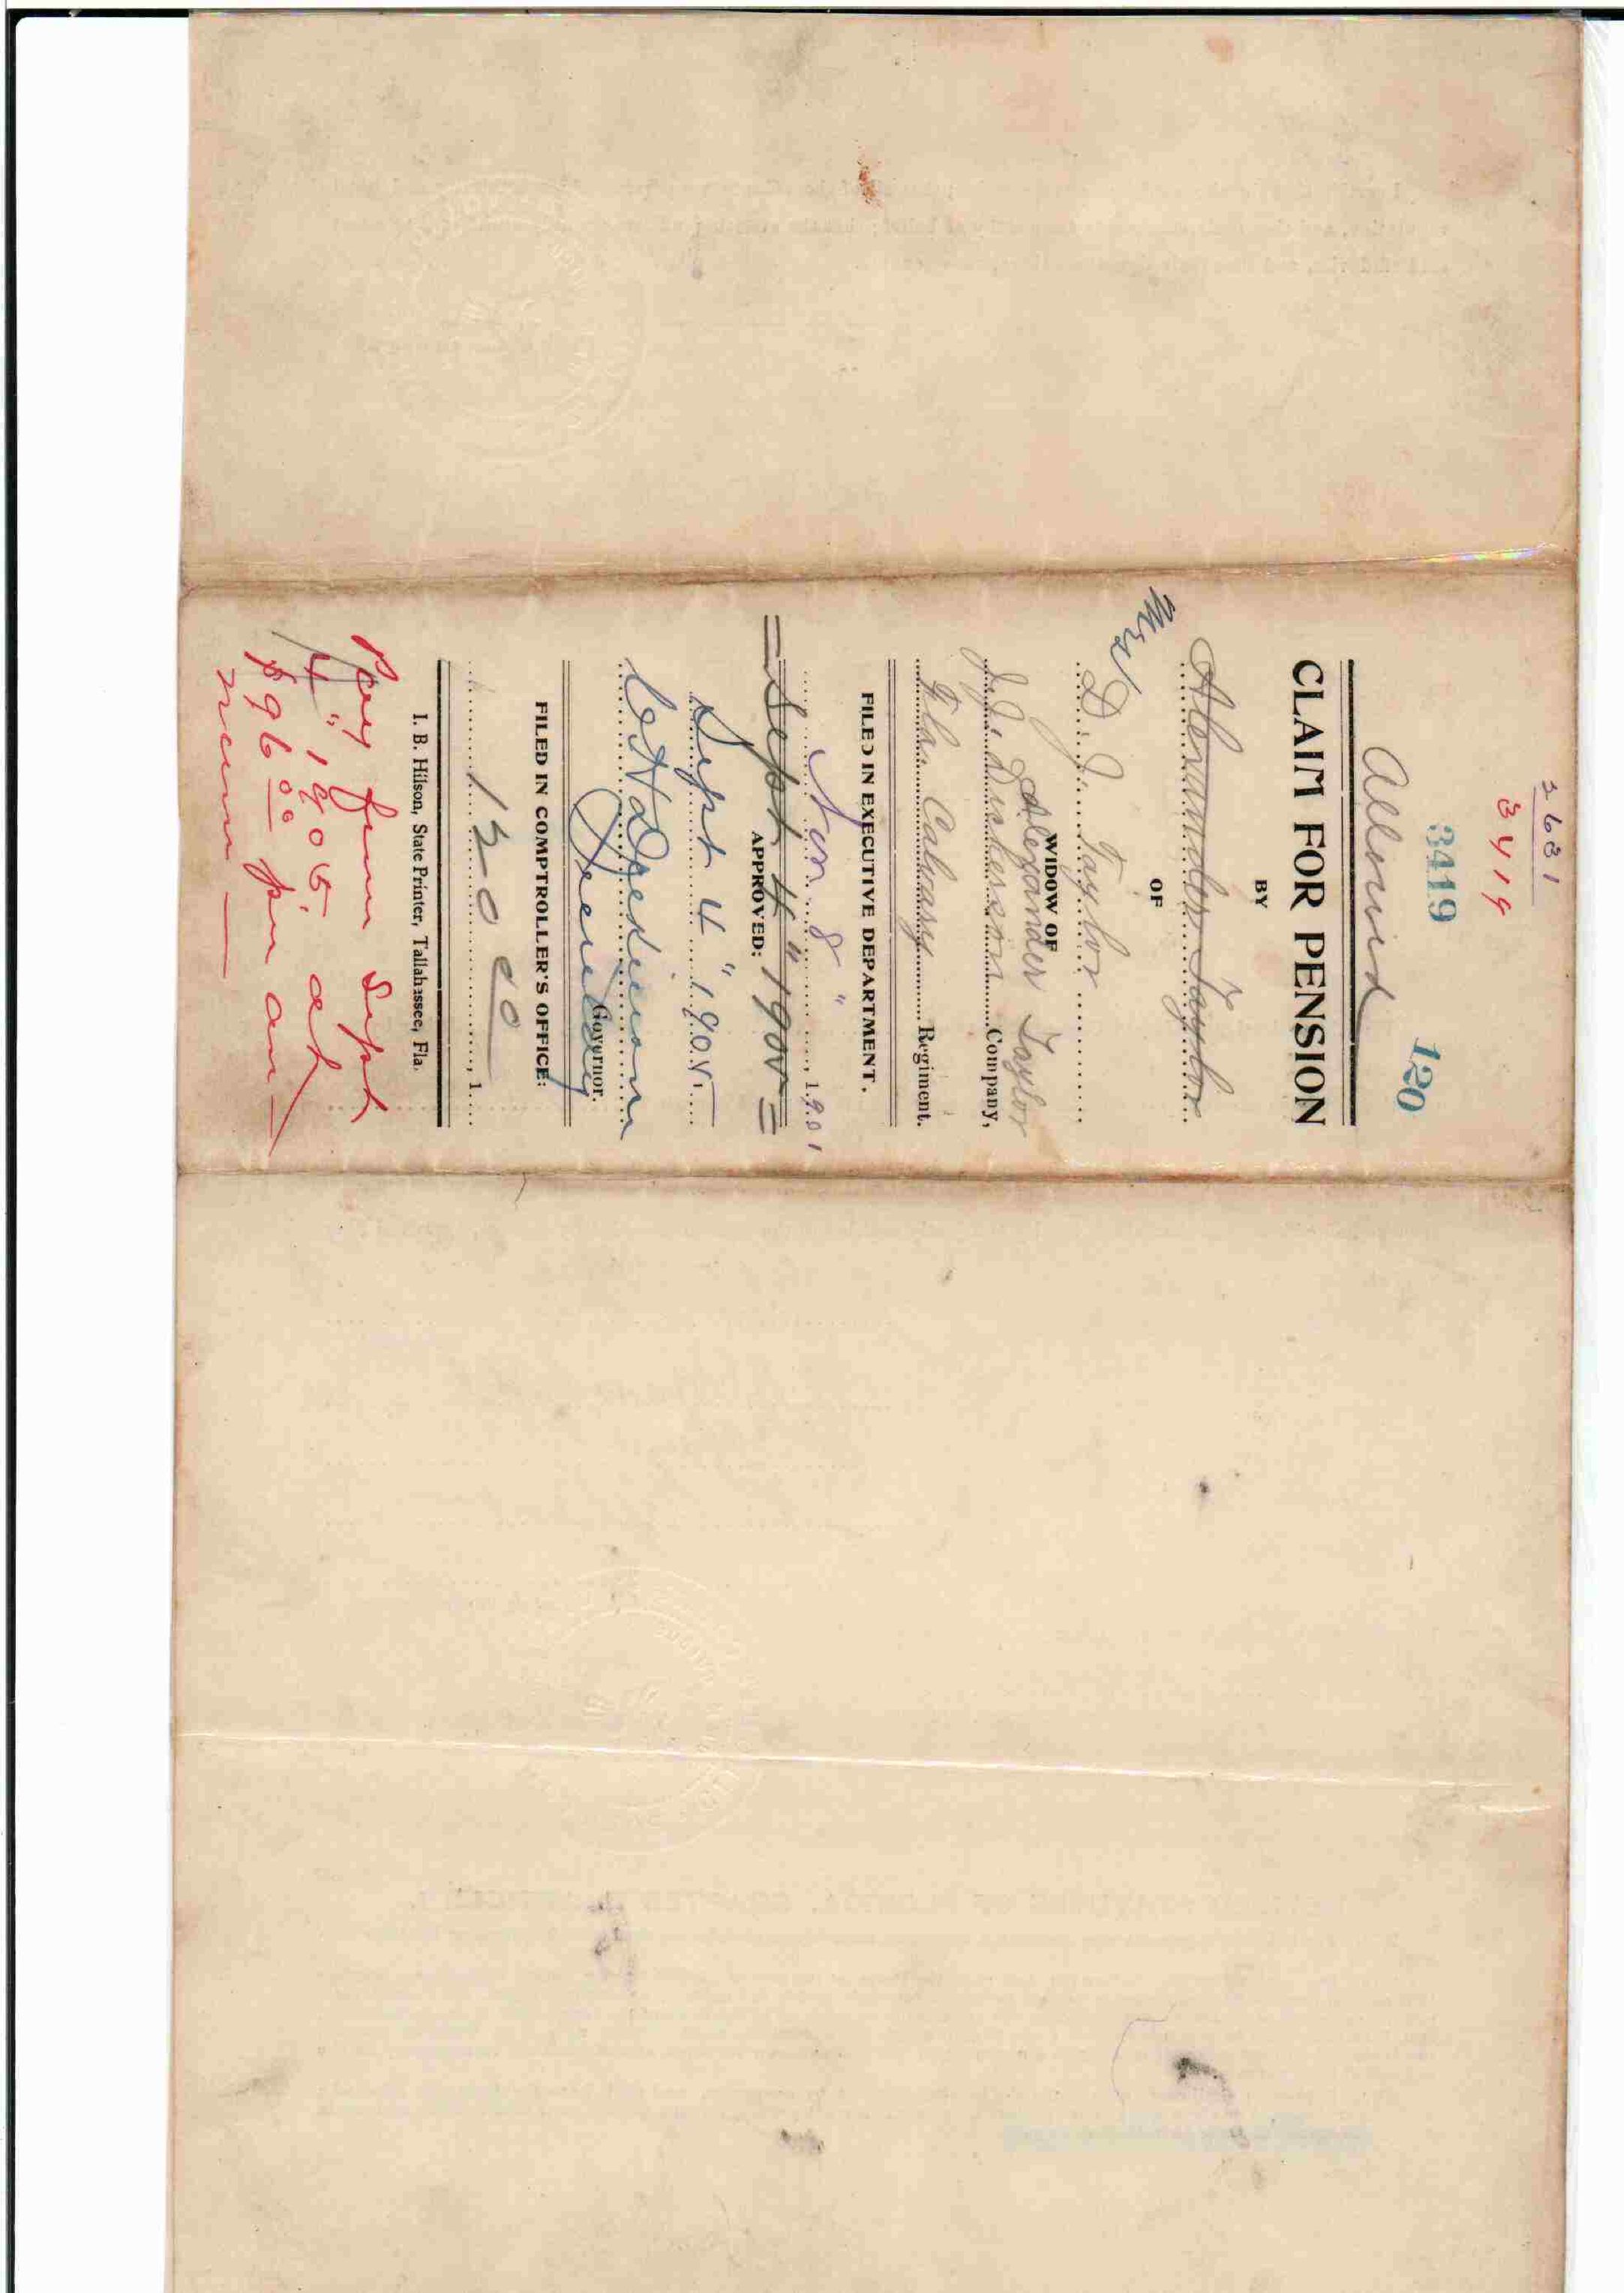 2631
3419
3419 120
Allowed
CLAIM FOR PENSION
BY
Alexander Taylor
OF
Mrs D. J. Taylor
WIDOW OF
Alexander Taylor
J. J. Dickerson Company,
Fla. Calvary Regiment.
FILED IN EXECUTIVE DEPARTMENT.
8" , 1901
Sept 4" 190
APPROVED:
Sept 4" 1905
Governor.
FILED IN COMPTROLLER'S OFFICE:
120 00
, 1
I. B. Hilson, State Printer, Tallahassee, Fla.
Pay from Sept
4" 1905 at
$96 00 per an-
num